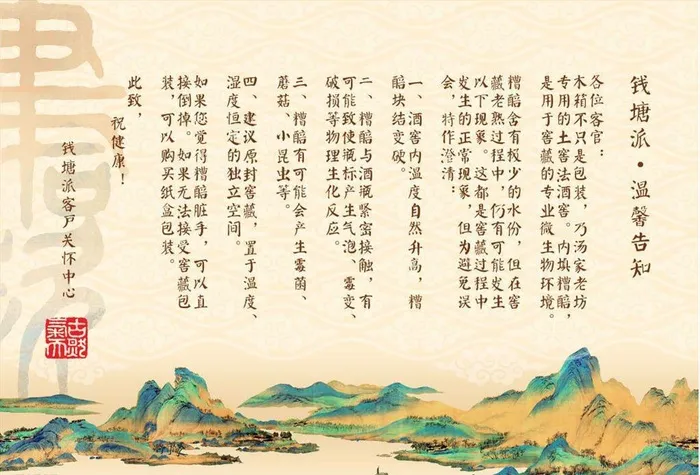 钱塘派·温馨告知
各位客官：
木箱不只是包装，乃汤家老坊
专用的土窖法酒窖。内填糟醅，
是用于窖藏的专业微生物环境。
糟醅含有极少的水份，但在窖
藏老熟过程中，仍有可能发生
以下现象。这都是窖藏过程中
发生的正常现象，但为避免误
会，特作澄清：
一、酒窖内温度自然升高，糟
醅块结变硬。
二、糟醅与酒瓶紧密接触，有
可能致使瓶标产生气泡、霉变、
破损等物理生化反应。
三、糟醅有可能会产生霉菌、
蘑菇、小昆虫等。
四、建议原封窖藏，置于温度、
湿度恒定的独立空间。
如果您觉得糟醅脏手，可以直
接倒掉。如果无法接受窖藏包
装，可以购买纸盒包装。
此致，
祝健康！
钱塘派客户关怀中心